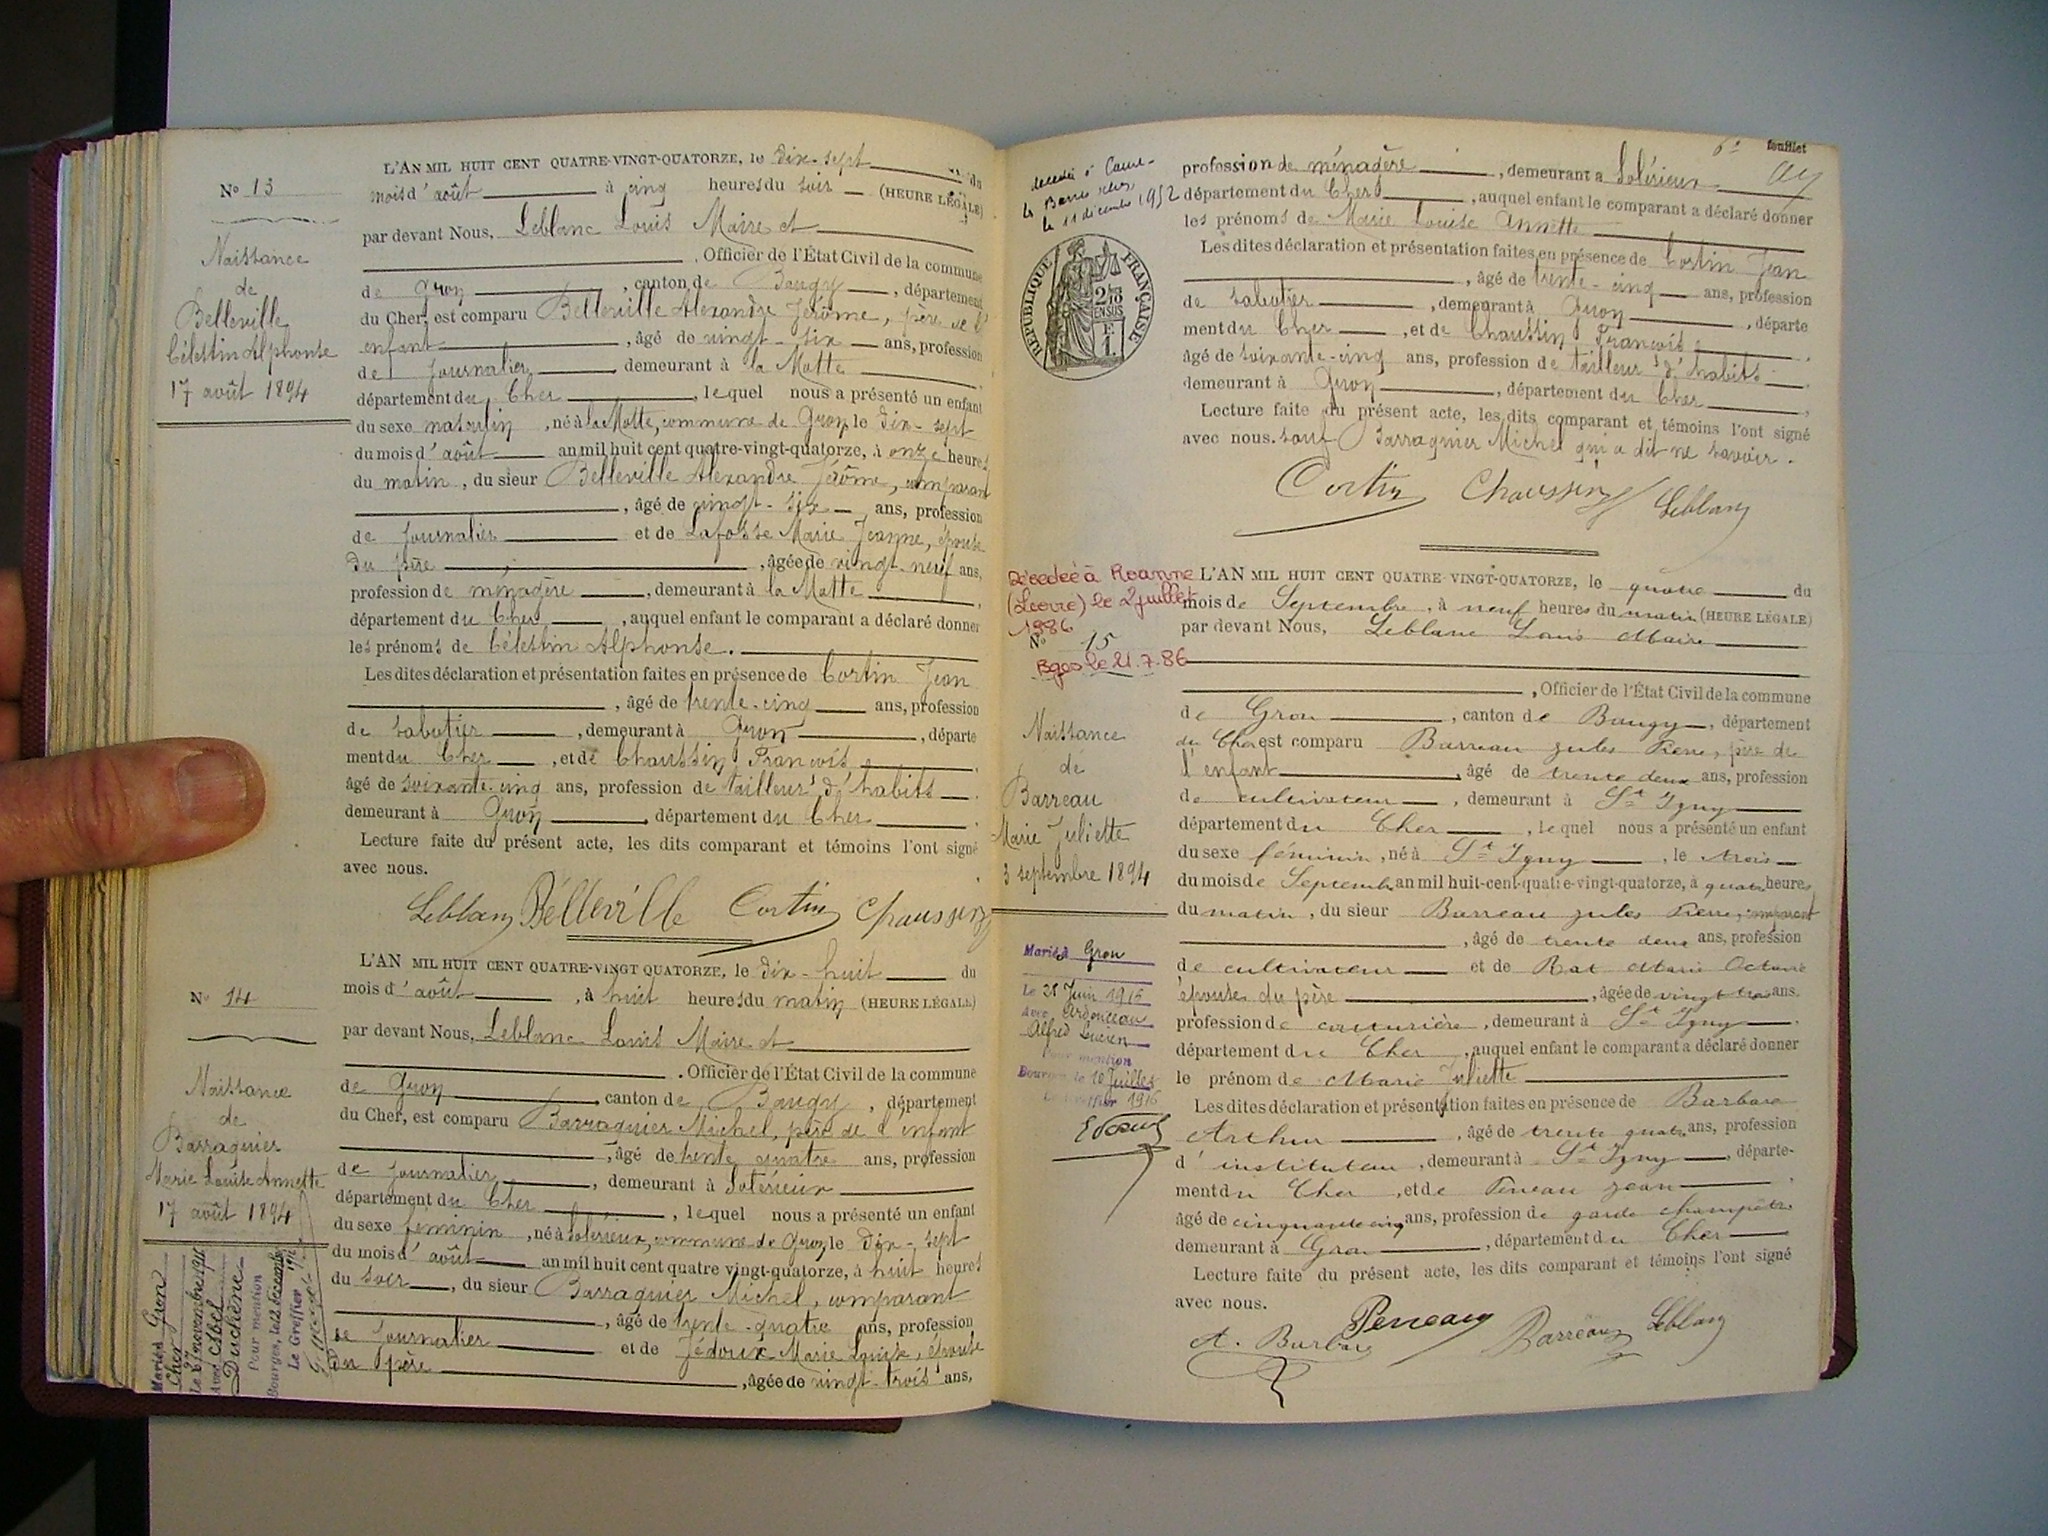 No 13
Naissance
de
Belleville
Célestin Alphonse
17 août 1894
L'AN MIL HUIT CENT QUATRE-VINGT-QUATORZE, le dix-sept du
mois d'août à cinq heures du soir (HEURE LÉGALE)
par devant Nous, Leblanc Louis Maire et
, Officier de l'État Civil de la commune
de Gron, canton de Baugy, département
du Cher, est comparu Belleville Alexandre Jérôme, père de l'
enfant, âgé de vingt-six ans, profession
de journalier demeurant à la Motte
département du Cher, lequel nous a présenté un enfant
du sexe masculin, né à la Motte, commune de Gron, le dix-sept
du mois d'août an mil huit cent quatre-vingt-quatorze, à onze heures
du matin, du sieur Belleville Alexandre Jérôme, comparant
, âgé de vingt-six ans, profession
de journalier et de Lafosse Marie Jeanne, épouse
du père, âgée de vingt-neuf ans,
profession de ménagère, demeurant à la Motte
département du Cher, auquel enfant le comparant a déclaré donner
les prénoms de Célestin Alphonse.
Les dites déclaration et présentation faites en présence de Cortin Jean
, âgé de trente-cinq ans, profession
de sabotier, demeurant à Gron, départe
ment du Cher, et de Chaussin François
âgé de soixante-cinq ans, profession de tailleur d'habits
demeurant à Gron, département du Cher
Lecture faite du présent acte, les dits comparant et témoins l'ont signé
avec nous.
Leblanc Belleville Cortin Chaussin
No 14
Naissance
de
Barraguier
Marie Louise Annette
17 août 1894
Marié à Gron
Cher
Le 27 novembre 191
Avec Abel
Duchêne
Pour mention
Bourges, le 12 décembre
Le Greffier
L'AN MIL HUIT CENT QUATRE-VINGT QUATORZE, le dix-huit du
mois d'août, à huit heures du matin (HEURE LÉGALE)
par devant Nous, Leblanc Louis Maire et
. Officier de l'État Civil de la commune
de Gron, canton de Baugy, département
du Cher, est comparu Barraguier Michel, père de l'enfant
, âgé de trente quatre ans, profession
de journalier, demeurant à Solérieux
département du Cher, lequel nous a présenté un enfant
du sexe féminin, né à Solérieux, commune de Gron, le dix-sept
du mois d'août an mil huit cent quatre vingt-quatorze, à huit heures
du soir, du sieur Barraguier Michel, comparant
, âgé de trente-quatre ans, profession
de journalier et de Jédoux Marie Louise, épouse
du père, âgée de vingt-trois ans,
6e feuillet
décédée à
le 11 décembre 1952
RÉPUBLIQUE FRANÇAISE
profession de ménagère, demeurant à Solérieux
département du Cher, auquel enfant le comparant a déclaré donner
les prénoms de Marie Louise Annette
Les dites déclaration et présentation faites en présence de Cortin Jean
, âgé de trente-cinq ans, profession
de sabotier, demeurant à Gron, départe
ment du Cher, et de Chaussin François
âgé de soixante-cinq ans, profession de tailleur d'habits
demeurant à Gron, département du Cher
Lecture faite du présent acte, les dits comparant et témoins l'ont signé
avec nous. sauf Barraguier Michel qui a dit ne savoir.
Cortin Chaussin Leblanc
Décédée à Roanne
(Loire) le 2 juillet
1986
No 15
Bges le 21.7.86
Naissance
de
Barreau
Marie Juliette
3 septembre 1894
Marié à Gron
Le 21 Juin 1916
Avec Ardonceau
Alfred Lucien
Pour mention
Bourges le 10 Juillet
Le Greffier 1916
L'AN MIL HUIT CENT QUATRE-VINGT-QUATORZE, le quatre du
mois de Septembre, à neuf heures du matin (HEURE LÉGALE)
par devant Nous, Leblanc Louis Maire
, Officier de l'État Civil de la commune
de Gron, canton de Baugy, département
du Cher est comparu Barreau Jules Pierre, père de
l'enfant, âgé de trente deux ans, profession
de cultivateur, demeurant à St Igny
département du Cher, lequel nous a présenté un enfant
du sexe féminin, né à St Igny, le trois
du mois de Septembre an mil huit-cent-quatre-vingt-quatorze, à quatre heures
du matin, du sieur Barreau Jules Pierre, comparant
, âgé de trente deux ans, profession
de cultivateur et de Rat Marie Octavie
épouse du père, âgée de vingt trois ans.
profession de couturière, demeurant à St Igny
département du Cher, auquel enfant le comparant a déclaré donner
le prénom de Marie Juliette
Les dites déclaration et présentation faites en présence de Barbare
Arthur, âgé de trente quatre ans, profession
d'instituteur, demeurant à St Igny, départe-
ment du Cher, et de Peneau Jean
âgé de cinquante cinq ans, profession de garde champêtre
demeurant à Gron, département du Cher
Lecture faite du présent acte, les dits comparant et témoins l'ont signé
avec nous.
A. Barbare Peneau Barreau Leblanc